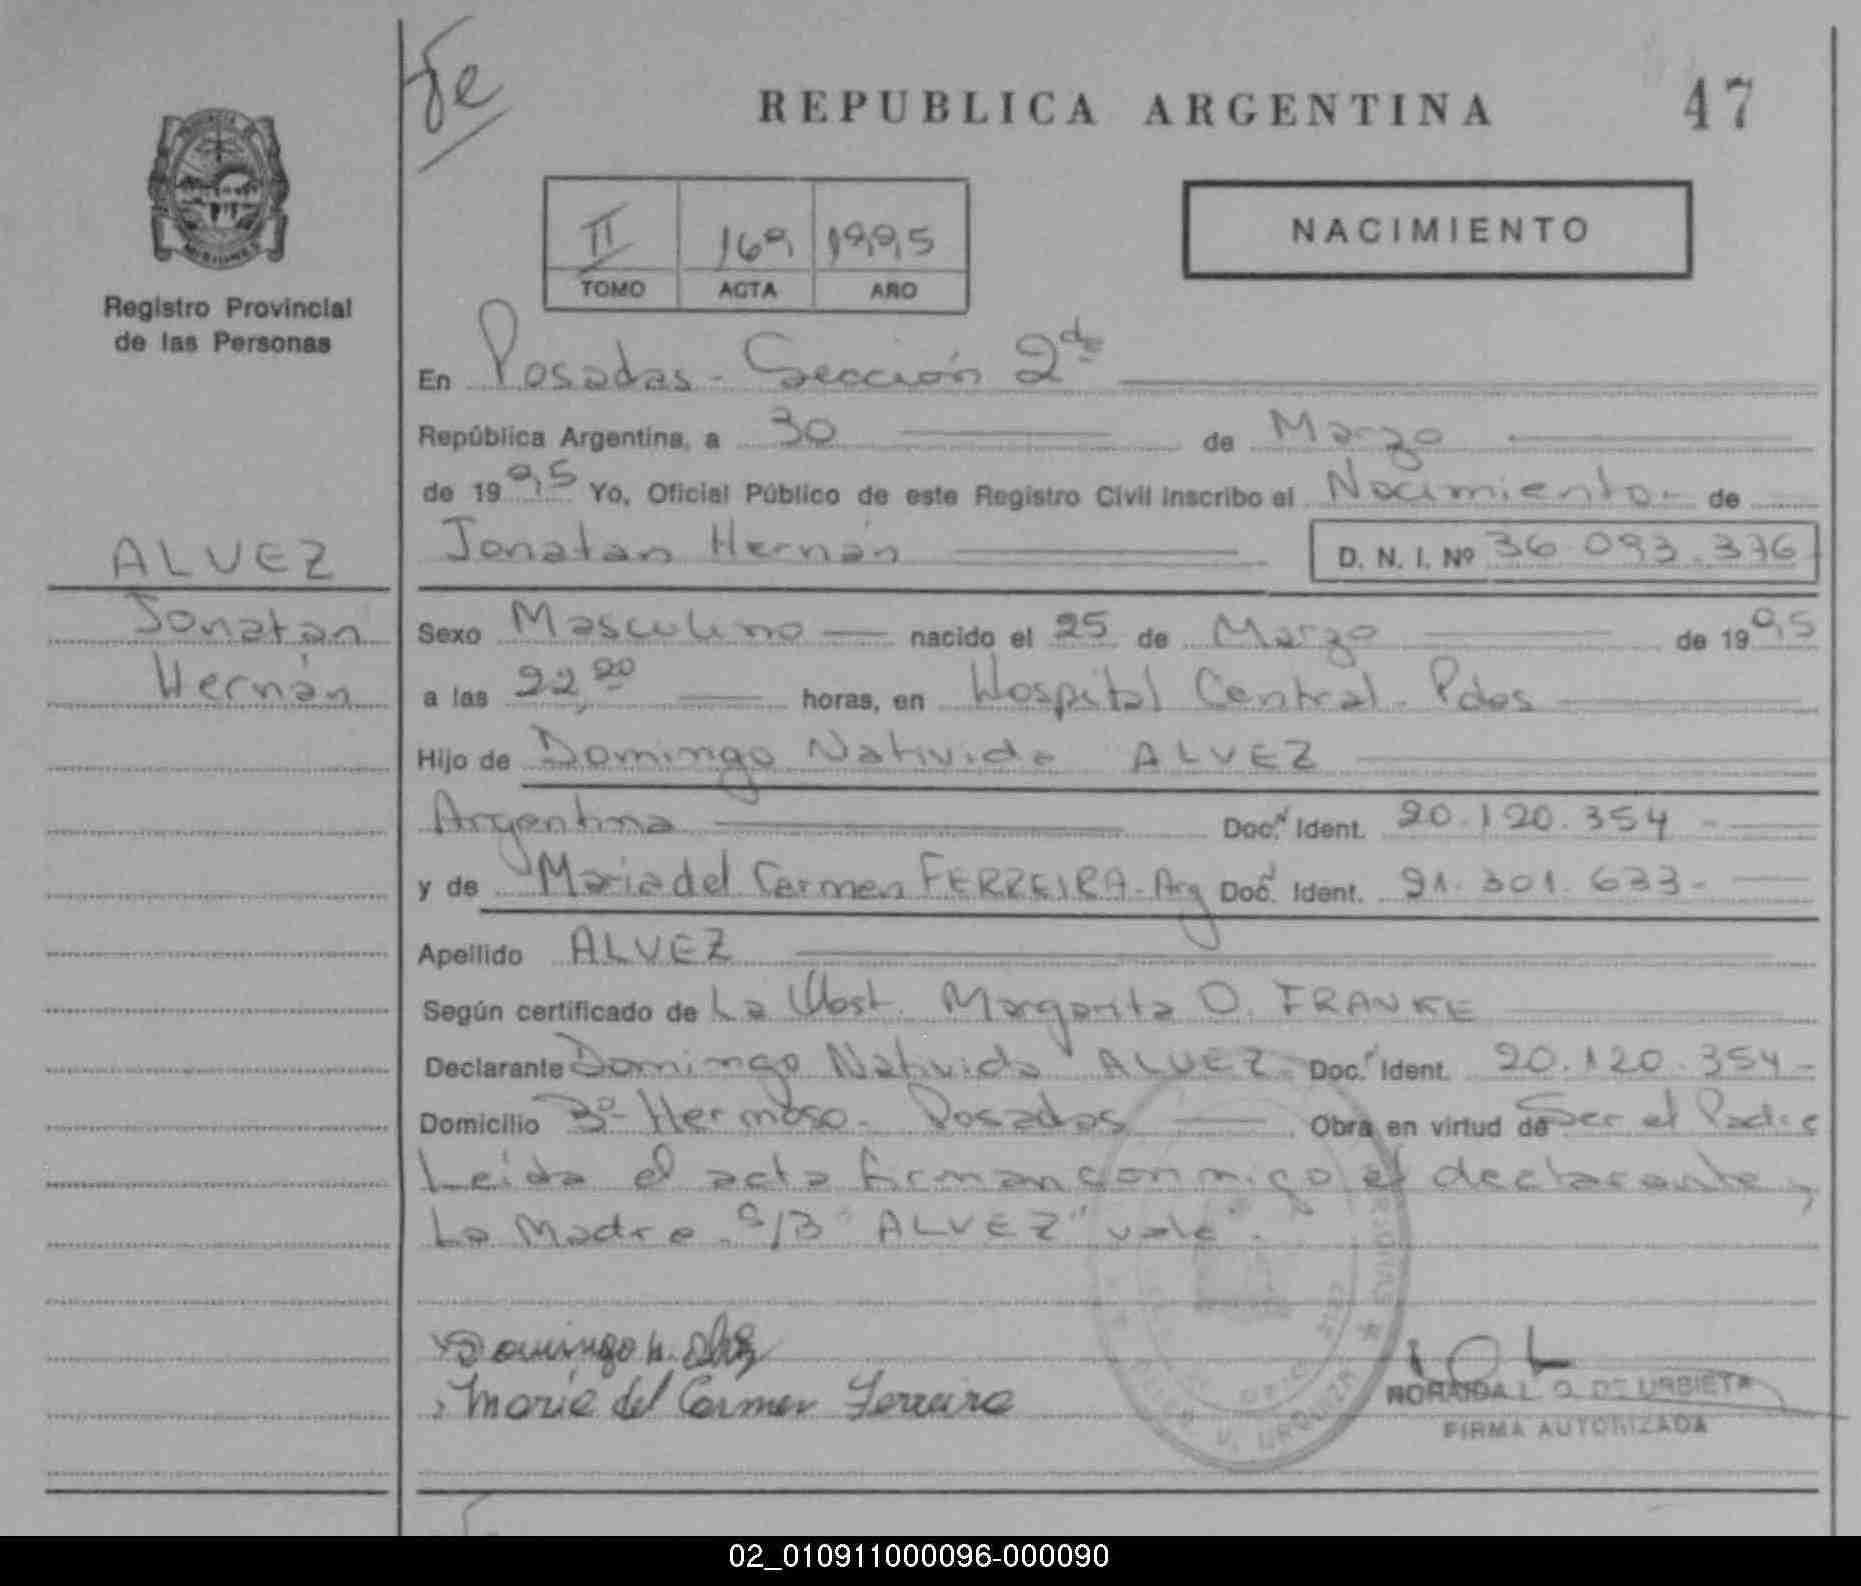 REPUBLICA ARGENTINA 47
Registro Provincial
de las Personas
NACIMIENTO
II 169 1995
TOMO ACTA AÑO
En Posadas - Sección 2da
República Argentina, a 30 de Marzo
de 1995 Yo, Oficial Público de este Registro Civil inscribo el Nacimiento - de
Jonatan Hernán D. N. I. Nº 36.093.376
ALVEZ
Jonatán
Hernán
Sexo Masculino nacido el 25 de Marzo de 1995
a las 22,20 horas, en Hospital Central - Pdas
Hijo de Domingo Nativida ALVEZ
Argentina Doc. Ident. 20.120.354 -
y de Maria del Carmen FERREIRA - Arg Doc. Ident. 21.301.633 -
Apellido ALVEZ
Según certificado de La Obst. Margarita O. FRANKE
Declarante Domingo Nativida ALVEZ Doc. Ident. 20.120.354 -
Domicilio Bº Hermoso - Posadas Obra en virtud de Ser el Padre
Leida el acta firman conmigo el declarante,
La Madre - S/B "ALVEZ" vale -
Domingo N. Alvez
Maria del Carmen Ferreira
NORAIDA L. O. DE URBIETA
FIRMA AUTORIZADA
02_010911000096-000090